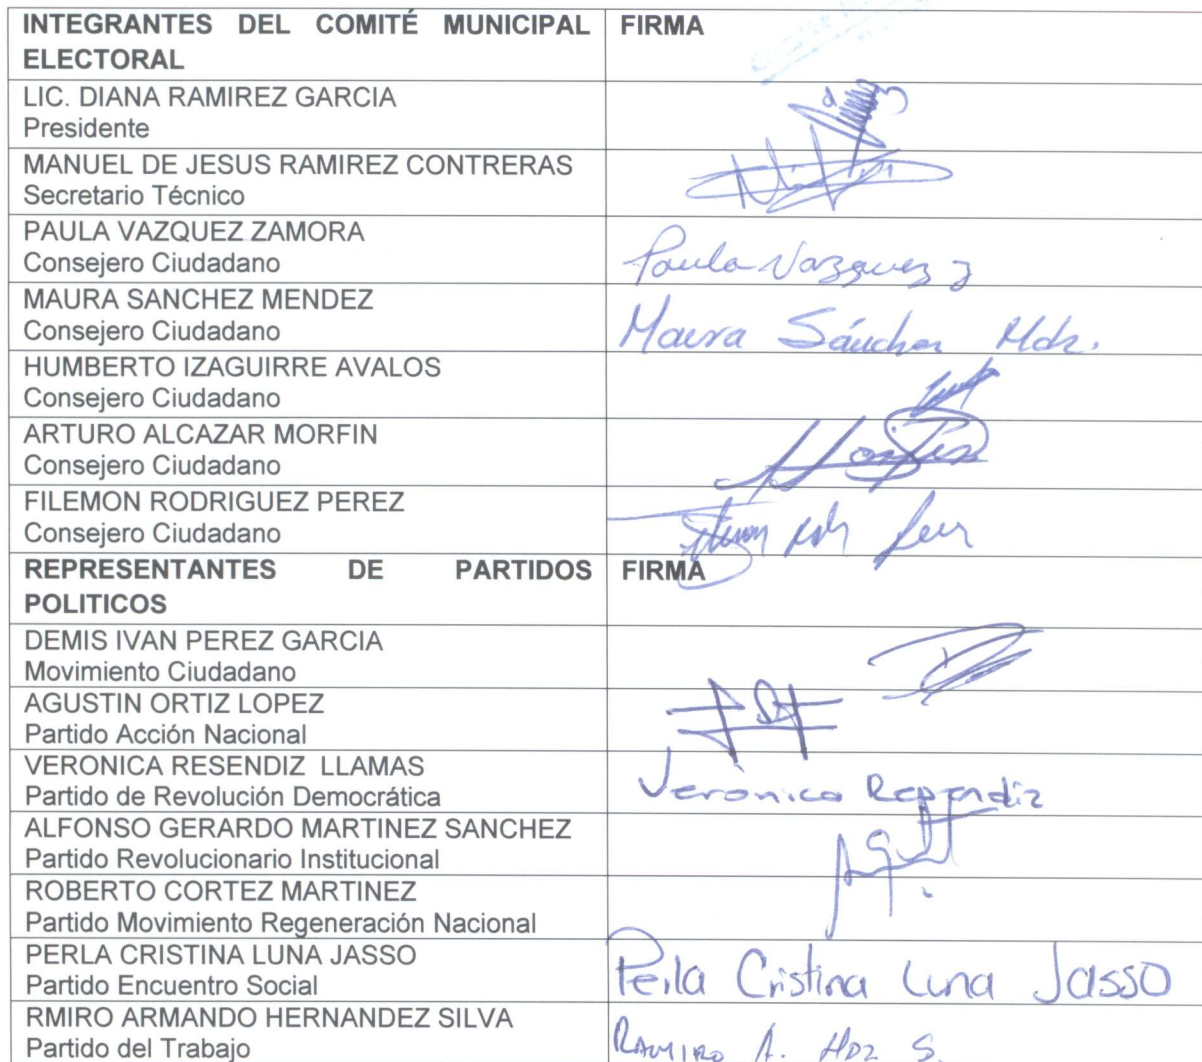 INTEGRANTES DEL COMITÉ MUNICIPAL ELECTORAL FIRMA
LIC. DIANA RAMIREZ GARCIA
Presidente
MANUEL DE JESUS RAMIREZ CONTRERAS
Secretario Técnico
PAULA VAZQUEZ ZAMORA
Consejero Ciudadano
Paula Vazquez Z
MAURA SANCHEZ MENDEZ
Consejero Ciudadano
Maura Sánchez Mdz.
HUMBERTO IZAGUIRRE AVALOS
Consejero Ciudadano
ARTURO ALCAZAR MORFIN
Consejero Ciudadano
FILEMON RODRIGUEZ PEREZ
Consejero Ciudadano
REPRESENTANTES DE PARTIDOS POLITICOS FIRMA
DEMIS IVAN PEREZ GARCIA
Movimiento Ciudadano
AGUSTIN ORTIZ LOPEZ
Partido Acción Nacional
VERONICA RESENDIZ LLAMAS
Partido de Revolución Democrática
Verónica Resendiz
ALFONSO GERARDO MARTINEZ SANCHEZ
Partido Revolucionario Institucional
ROBERTO CORTEZ MARTINEZ
Partido Movimiento Regeneración Nacional
PERLA CRISTINA LUNA JASSO
Partido Encuentro Social
Perla Cristina Luna Jasso
RMIRO ARMANDO HERNANDEZ SILVA
Partido del Trabajo
RAMIRO A. HDZ S.